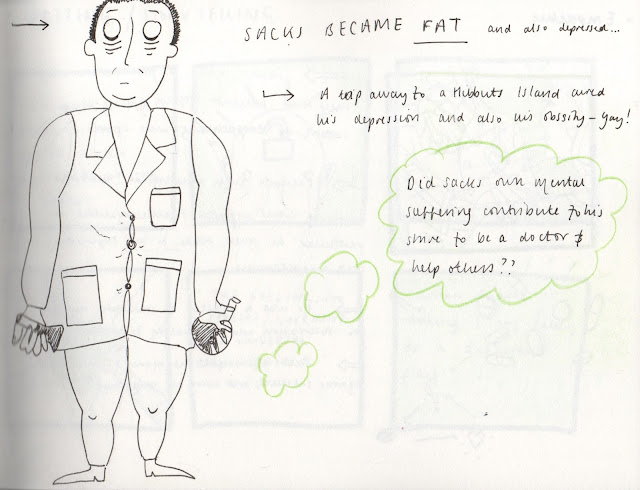 SACKS BECAME FAT and also depressed...
A trip away to a Kibbuts Island cured
his depression and also his obssity - yay!
Did sacks own mental
suffering contribute to his
strive to be a doctor &
help others??